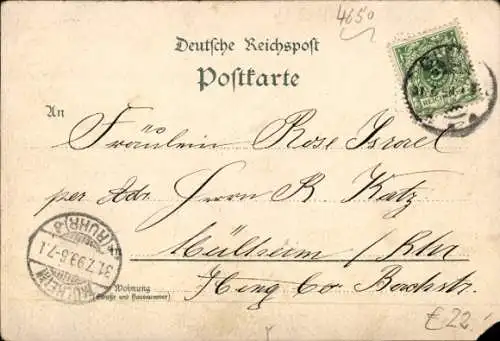 4650
Deutsche Reichspost
Postkarte
An
Fräulein Rose Israel
per Adr. Herrn R Katz
Mülheim / Rhr
Wohnung
(Straße und Hausnummer)
Hing Co Bachstr.
MÜLHEIM (RUHR)
31.7.99.6-7.N
€ 22.-